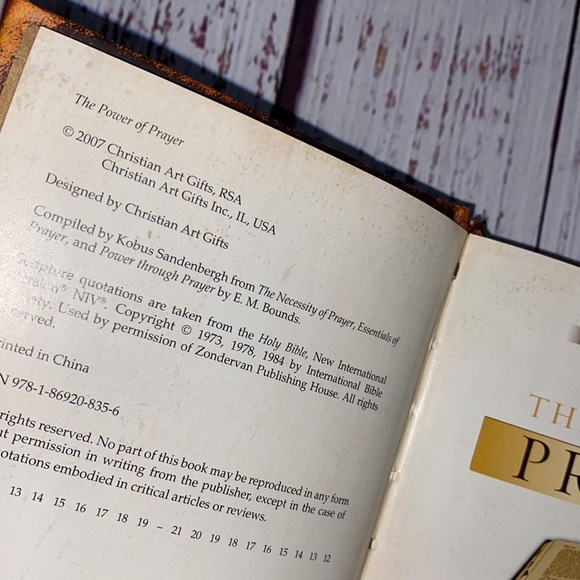 The Power of Prayer
© 2007 Christian Art Gifts, RSA
Christian Art Gifts Inc., IL, USA
Designed by Christian Art Gifts
Compiled by Kobus Sandenbergh from The Necessity of Prayer, Essentials of
Prayer, and Power through Prayer by E. M. Bounds.
Scripture quotations are taken from the Holy Bible, New International
NIV®. Copyright © 1973, 1978, 1984 by International Bible
Used by permission of Zondervan Publishing House. All rights
in China
978-1-86920-835-6
rights reserved. No part of this book may be reproduced in any form
permission in writing from the publisher, except in the case of
embodied in critical articles or reviews.
13 14 15 16 17 18 19 – 21 20 19 18 17 16 15 14 13 12
TH
PR